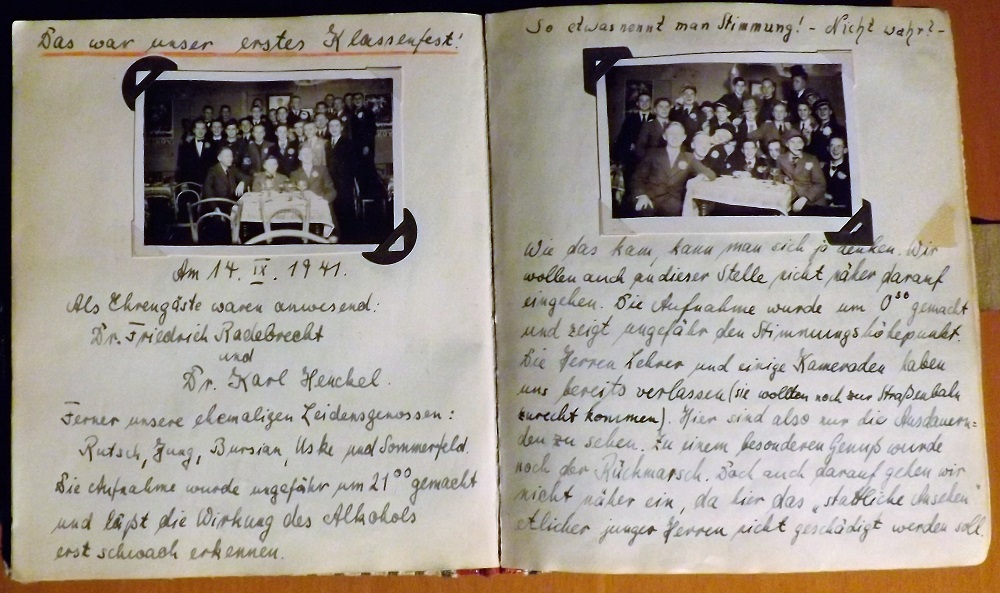 Das war unser erstes Klassenfest!
Am 14. IX. 1941.
Als Ehrengäste waren anwesend:
Dr. Friedrich Radebrecht
und
Dr. Karl Henckel.
Ferner unsere ehemaligen Leidensgenossen:
Rutsch, Jung, Bursian, Uske und Sommerfeld.
Die Aufnahme wurde ungefähr um 21⁰⁰ gemacht
und läßt die Wirkung des Alkohols
erst schwach erkennen.
So etwas nennt man Stimmung! - Nicht wahr? -
Wie das kam, kann man sich ja denken. Wir
wollen auch an dieser Stelle nicht näher darauf
eingehen. Die Aufnahme wurde um 0³⁰ gemacht
und zeigt ungefähr den Stimmungshöhepunkt.
Die Herren Lehrer und einige Kameraden haben
uns bereits verlassen (sie wollten noch zur Straßenbahn
zurecht kommen). Hier sind also nur die Ausdauern=
den zu sehen. Zu einem besonderen Genuß wurde
noch der Rückmarsch. Doch auch darauf gehen wir
nicht näher ein, da hier das „stattliche Ansehen"
etlicher junger Herren nicht geschädigt werden soll.